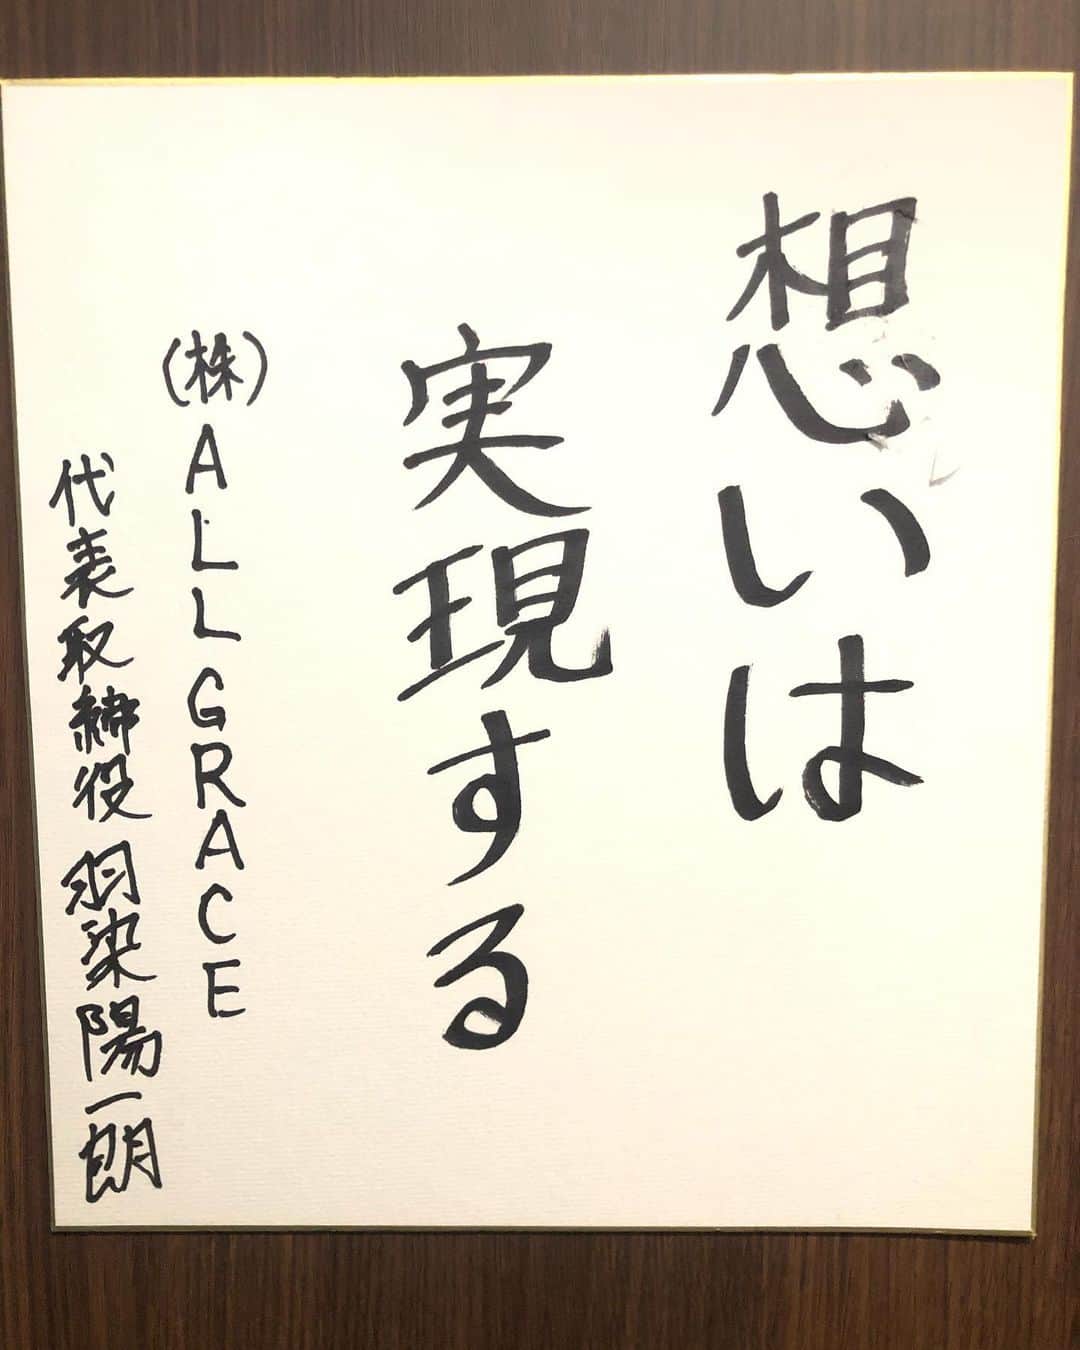 想いは
実現する
(株)ALL GRACE
代表取締役 羽染陽一朗